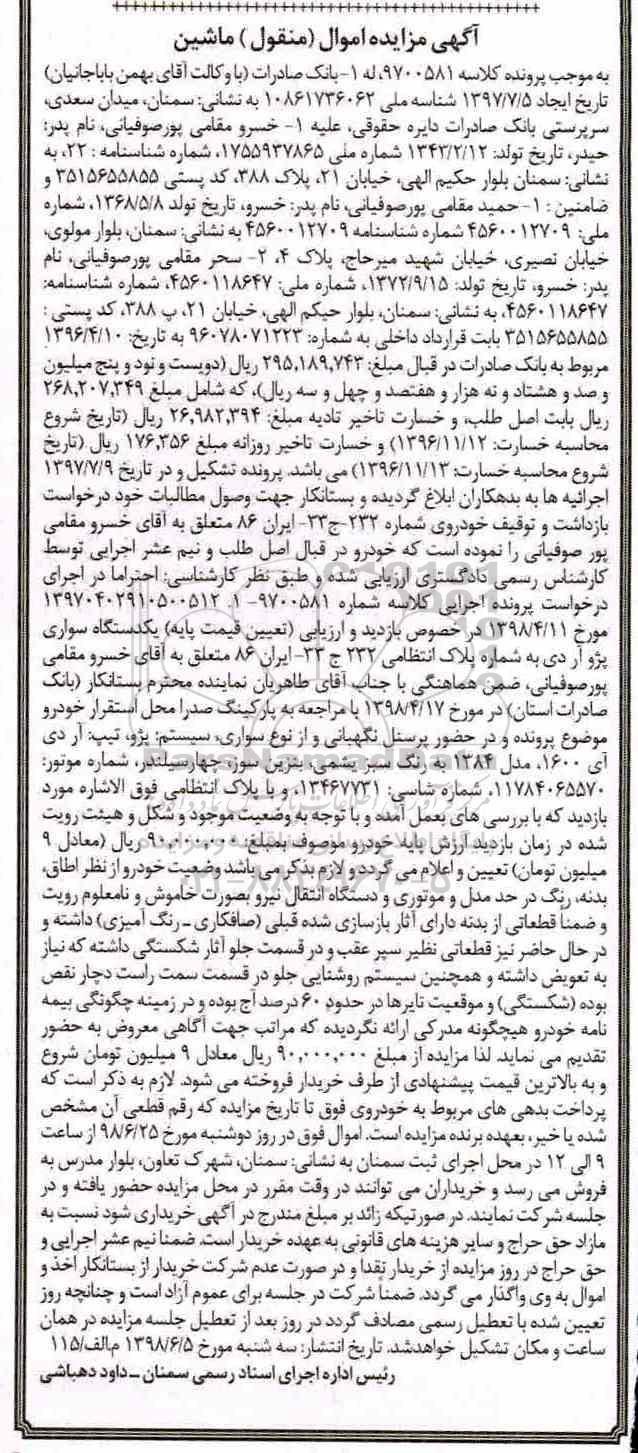 آگهی مزایده اموال (منقول) ماشین
به موجب پرونده کلاسه ۹۷۰۰۵۸۱، له ۱-بانک صادرات (با وکالت آقای بهمن باباجانیان)
تاریخ ایجاد ۱۳۹۷/۷/۵ شناسه ملی ۱۰۸۶۱۷۳۶۰۶۲ به نشانی: سمنان، میدان سعدی،
سرپرستی بانک صادرات دایره حقوقی، علیه ۱- خسرو مقامی پورصوفیانی، نام پدر:
حیدر، تاریخ تولد: ۱۳۴۳/۲/۱۲ شماره ملی ۱۷۵۵۹۳۷۸۶۵، شماره شناسنامه : ۲۲، به
نشانی: سمنان بلوار حکیم الهی، خیابان ۲۱، پلاک ۳۸۸، کد پستی ۳۵۱۵۶۵۵۸۵۵ و
ضامنین : ۱-حمید مقامی پورصوفیانی، نام پدر: خسرو، تاریخ تولد ۱۳۶۸/۵/۸، شماره
ملی: ۴۵۶۰۰۱۲۷۰۹ شماره شناسنامه ۴۵۶۰۰۱۲۷۰۹ به نشانی: سمنان، بلوار مولوی،
خیابان نصیری، خیابان شهید میرحاج، پلاک ۴، ۲- سحر مقامی پورصوفیانی، نام
پدر: خسرو، تاریخ تولد: ۱۳۷۲/۹/۱۵، شماره ملی: ۴۵۶۰۱۱۸۶۴۷، شماره شناسنامه:
۴۵۶۰۱۱۸۶۴۷، به نشانی: سمنان، بلوار حیکم الهی، خیابان ۲۱، پ ۳۸۸، کد پستی :
۳۵۱۵۶۵۵۸۵۵ بابت قرارداد داخلی به شماره: ۹۶۰۷۸۰۷۱۲۲۳ به تاریخ: ۱۳۹۶/۴/۱۰
مربوط به بانک صادرات در قبال مبلغ: ۲۹۵,۱۸۹,۷۴۳ ریال (دویست و نود و پنج میلیون
و صد و هشتاد و نه هزار و هفتصد و چهل و سه ریال)، که شامل مبلغ ۲۶۸,۲۰۷,۳۴۹
ریال بابت اصل طلب، و خسارت تاخیر تادیه مبلغ: ۲۶,۹۸۲,۳۹۴ ریال (تاریخ شروع
محاسبه خسارت: ۱۳۹۶/۱۱/۱۲) و خسارت تاخیر روزانه مبلغ ۱۷۶,۳۵۶ ریال (تاریخ
شروع محاسبه خسارت: ۱۳۹۶/۱۱/۱۳) می باشد. پرونده تشکیل و در تاریخ ۱۳۹۷/۷/۹
اجرائیه ها به بدهکاران ابلاغ گردیده و بستانکار جهت وصول مطالبات خود درخواست
بازداشت و توقیف خودروی شماره ۲۳۲-ج۳۳- ایران ۸۶ متعلق به آقای خسرو مقامی
پور صوفیانی را نموده است که خودرو در قبال اصل طلب و نیم عشر اجرایی توسط
کارشناس رسمی دادگستری ارزیابی شده و طبق نظر کارشناسی: احتراما در اجرای
درخواست پرونده اجرایی کلاسه شماره ۹۷۰۰۵۸۱- ۱. ۱۳۹۷۰۴۰۲۹۱۰۵۰۰۵۱۲
مورخ ۱۳۹۸/۴/۱۱ در خصوص بازدید و ارزیابی (تعیین قیمت پایه) یکدستگاه سواری
پژو آر دی به شماره پلاک انتظامی ۲۳۲ ج ۳۳- ایران ۸۶ متعلق به آقای خسرو مقامی
پورصوفیانی، ضمن هماهنگی با جناب آقای طاهریان نماینده محترم بستانکار (بانک
صادرات استان) در مورخ ۱۳۹۸/۴/۱۷ با مراجعه به پارکینگ صدرا محل استقرار خودرو
موضوع پرونده و در حضور پرسنل نگهبانی و از نوع سواری، سیستم: پژو، تیپ: آر دی
آی ۱۶۰۰، مدل ۱۳۸۴ به رنگ سبز یشمی، بنزین سوز، چهارسیلندر، شماره موتور:
۱۱۷۸۴۰۶۵۵۷۰، شماره شاسی: ۱۳۴۶۷۷۳۱، و با پلاک انتظامی فوق الاشاره مورد
بازدید که با بررسی های بعمل آمده و با توجه به وضعیت موجود و شکل و هیئت رویت
شده در زمان بازدید ارزش پایه خودرو موصوف بمبلغ ۹۰,۰۰۰,۰۰۰ ریال (معادل ۹
میلیون تومان) تعیین و اعلام می گردد و لازم بذکر می باشد وضعیت خودرو از نظر اطاق،
بدنه، رنگ در حد مدل و موتوری و دستگاه انتقال نیرو بصورت خاموش و نامعلوم رویت
و ضمناً قطعاتی از بدنه دارای آثار بازسازی شده قبلی (صافکاری ـ رنگ آمیزی) داشته و
در حال حاضر نیز قطعاتی نظیر سپر عقب و در قسمت جلو آثار شکستگی داشته که نیاز
به تعویض داشته و همچنین سیستم روشنایی جلو در قسمت سمت راست دچار نقص
بوده (شکستگی) و موقعیت تایرها در حدود ۶۰ درصد آج بوده و در زمینه چگونگی بیمه
نامه خودرو هیچگونه مدرکی ارائه نگردیده که مراتب جهت آگاهی معروض به حضور
تقدیم می نماید. لذا مزایده از مبلغ ۹۰,۰۰۰,۰۰۰ ریال معادل ۹ میلیون تومان شروع
و به بالاترین قیمت پیشنهادی از طرف خریدار فروخته می شود. لازم به ذکر است که
پرداخت بدهی های مربوط به خودروی فوق تا تاریخ مزایده که رقم قطعی آن مشخص
شده یا خیر، بعهده برنده مزایده است. اموال فوق در روز دوشنبه مورخ ۹۸/۶/۲۵ از ساعت
۹ الی ۱۲ در محل اجرای ثبت سمنان به نشانی: سمنان، شهرک تعاون، بلوار مدرس به
فروش می رسد و خریداران می توانند در وقت مقرر در محل مزایده حضور یافته و در
جلسه شرکت نمایند. در صورتیکه زائد بر مبلغ مندرج در آگهی خریداری شود نسبت به
مازاد حق حراج و سایر هزینه های قانونی به عهده خریدار است. ضمنا نیم عشر اجرایی و
حق حراج در روز مزایده از خریدار نقدا و در صورت عدم شرکت خریدار از بستانکار اخذ و
اموال به وی واگذار می گردد. ضمناً شرکت در جلسه برای عموم آزاد است و چنانچه روز
تعیین شده با تعطیل رسمی مصادف گردد در روز بعد از تعطیل جلسه مزایده در همان
ساعت و مکان تشکیل خواهدشد. تاریخ انتشار: سه شنبه مورخ ۱۳۹۸/۶/۵ م.الف/۱۱۵
رئیس اداره اجرای اسناد رسمی سمنان ـ داود دهباشی